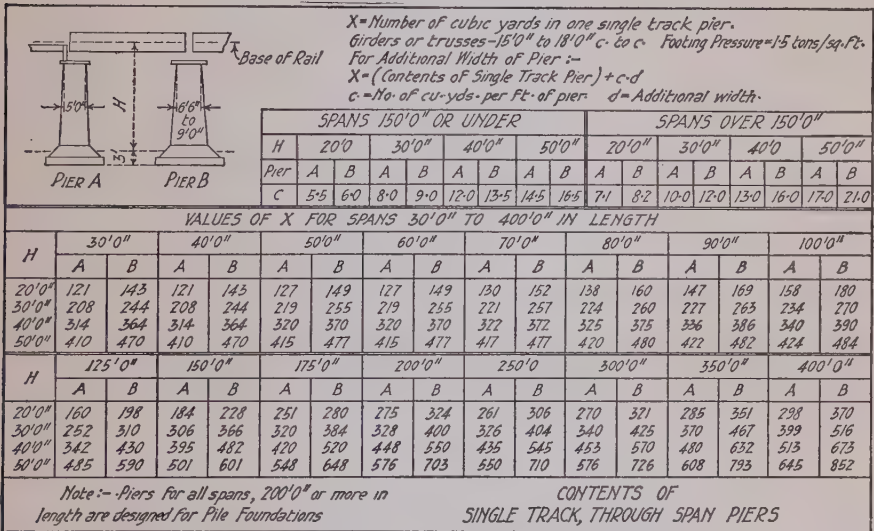 X=Number of cubic yards in one single track pier.
Girders or trusses-15'0" to 18'0" c. to c. Footing Pressure=1.5 tons/sq.ft.
For Additional Width of Pier :-
X=(Contents of Single Track Pier)+c.d
c.=No. of cu-yds. per ft. of pier. d=Additional width.
Base of Rail
H
5'0"
6'6"
to
9'0"
3'
PIER A PIER B
SPANS 150'0" OR UNDER SPANS OVER 150'0"
H 20'0 30'0" 40'0" 50'0" 20'0" 30'0" 40'0 50'0"
Pier A B A B A B A B A B A B A B A B
C 5.5 6.0 8.0 9.0 12.0 13.5 14.5 16.5 7.1 8.2 10.0 12.0 13.0 16.0 17.0 21.0
VALUES OF X FOR SPANS 30'0" TO 400'0" IN LENGTH
H 30'0" 40'0" 50'0" 60'0" 70'0" 80'0" 90'0" 100'0"
A B A B A B A B A B A B A B A B
20'0" 121 143 121 143 127 149 127 149 130 152 138 160 147 169 158 180
30'0" 208 244 208 244 219 255 219 255 221 257 224 260 227 263 234 270
40'0" 314 364 314 364 320 370 320 370 322 372 325 375 336 386 340 390
50'0" 410 470 410 470 415 477 415 477 417 477 420 480 422 482 424 484
H 125'0" 150'0" 175'0" 200'0" 250'0 300'0" 350'0" 400'0"
A B A B A B A B A B A B A B A B
20'0" 160 198 184 228 251 280 275 324 261 306 270 321 285 351 298 370
30'0" 252 310 306 366 320 384 328 400 326 404 340 425 370 467 399 516
40'0" 342 430 395 482 420 520 448 550 435 545 453 570 480 632 513 673
50'0" 485 590 501 601 548 648 576 703 550 710 576 726 608 793 645 852
Note:- Piers for all spans, 200'0" or more in
length are designed for Pile Foundations
CONTENTS OF
SINGLE TRACK, THROUGH SPAN PIERS